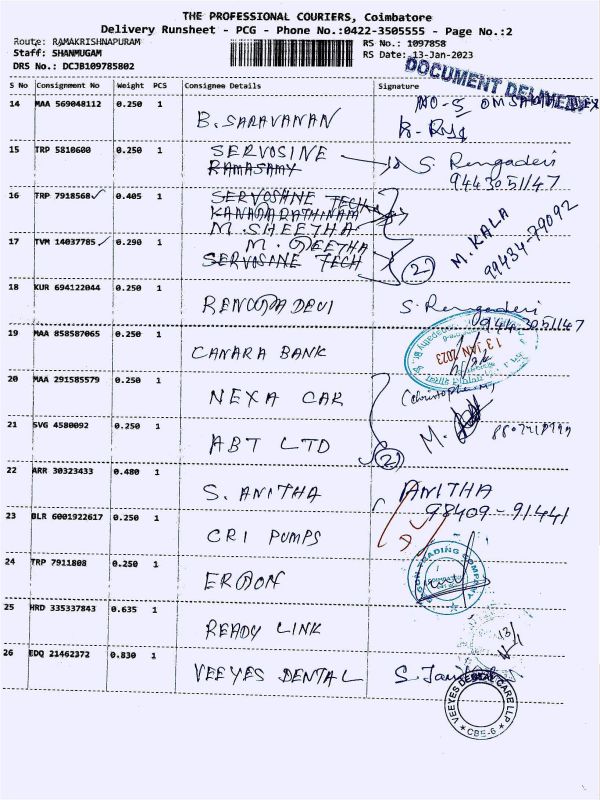 THE PROFESSIONAL COURIERS, Coimbatore
Delivery Runsheet - PCG - Phone No.:0422-3505555 - Page No.:2
Route: RAMAKRISHNAPURAM
RS No.: 1097858
Staff: SHANMUGAM
RS Date: 13-Jan-2023
DRS No.: DCJB109785802
DOCUMENT DELIVERED
S No Consignment No Weight PCS Consignee Details Signature
14 MAA 569048112 0.250 1 B. SARAVANAN
NO-5
15 TRP 5810600 0.250 1 SERVOSINE
RAMASAMY
S. Rengadevi
9443051147
16 TRP 7918568 0.405 1 SERVOSANE TECH
KANAGARATHINAM
M. SHEETHA
17 TVM 14037785 0.290 1 M. GEETHA
SERVOSANE TECH
2
M. KALA
99434-79092
18 KUR 694122044 0.250 1 RENUGADEVI
S. Rengadevi
9443051147
19 MAA 858587065 0.250 1 CANARA BANK
13 JAN 2023
20 MAA 291585579 0.250 1 NEXA CAR
(Christopher
21 SVG 4580092 0.250 1 ABT LTD
2
M.
22 ARR 30323433 0.480 1 S. ANITHA
ANITHA
98409-91441
23 BLR 6001922617 0.250 1 CRI PUMPS
24 TRP 7911808 0.250 1 ERGON
ERGON TRADING COMPANY
25 HRD 335337843 0.635 1 READY LINK
13/1
26 EDQ 21462372 0.830 1 VEEYES DENTAL
VEEYES DENTAL CARE LLP
CBE-6